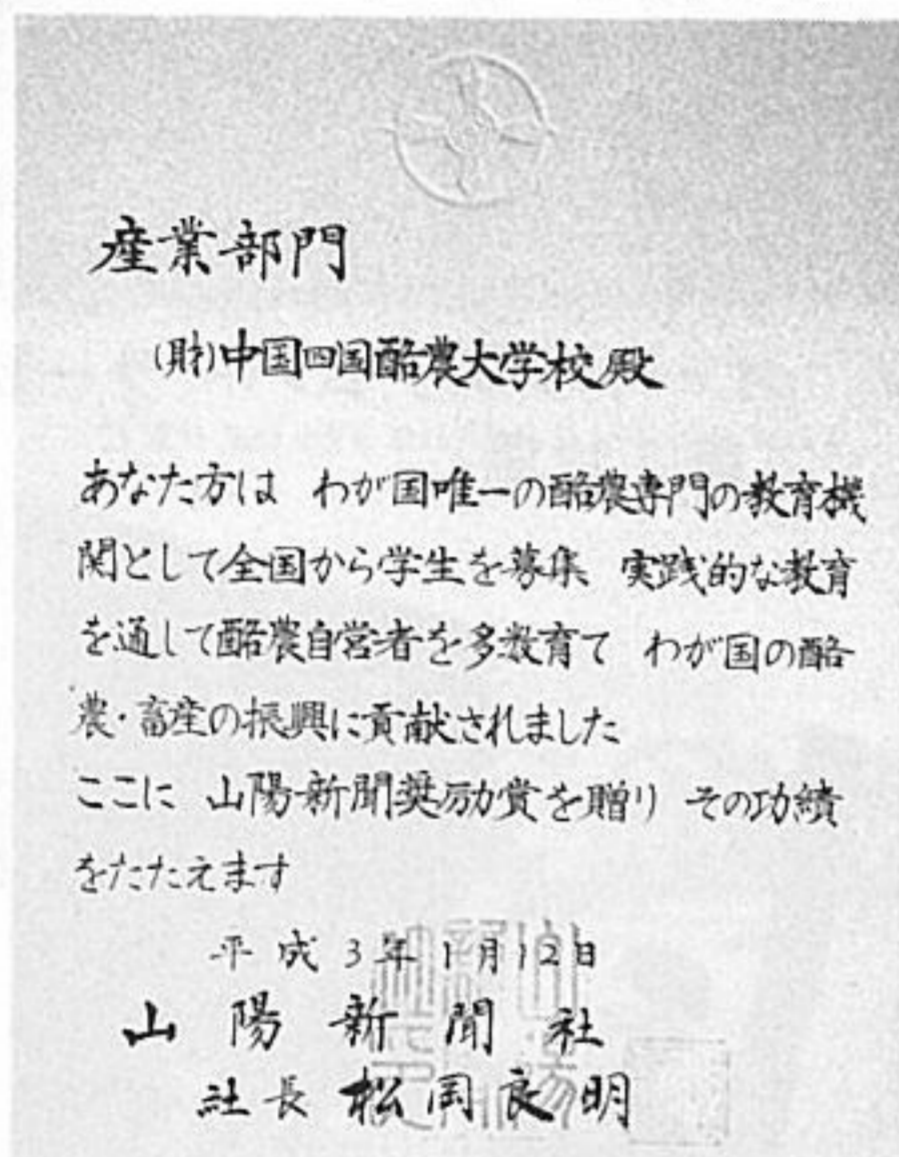 産業部門
(財)中国四国酪農大学校殿
あなた方は わが国唯一の酪農専門の教育機
関として全国から学生を募集 実践的な教育
を通して酪農自営者を多数育て わが国の酪
農・畜産の振興に貢献されました
ここに 山陽新聞奨励賞を贈り その功績
をたたえます
平成3年1月12日
山陽新聞社
社長 松岡良明